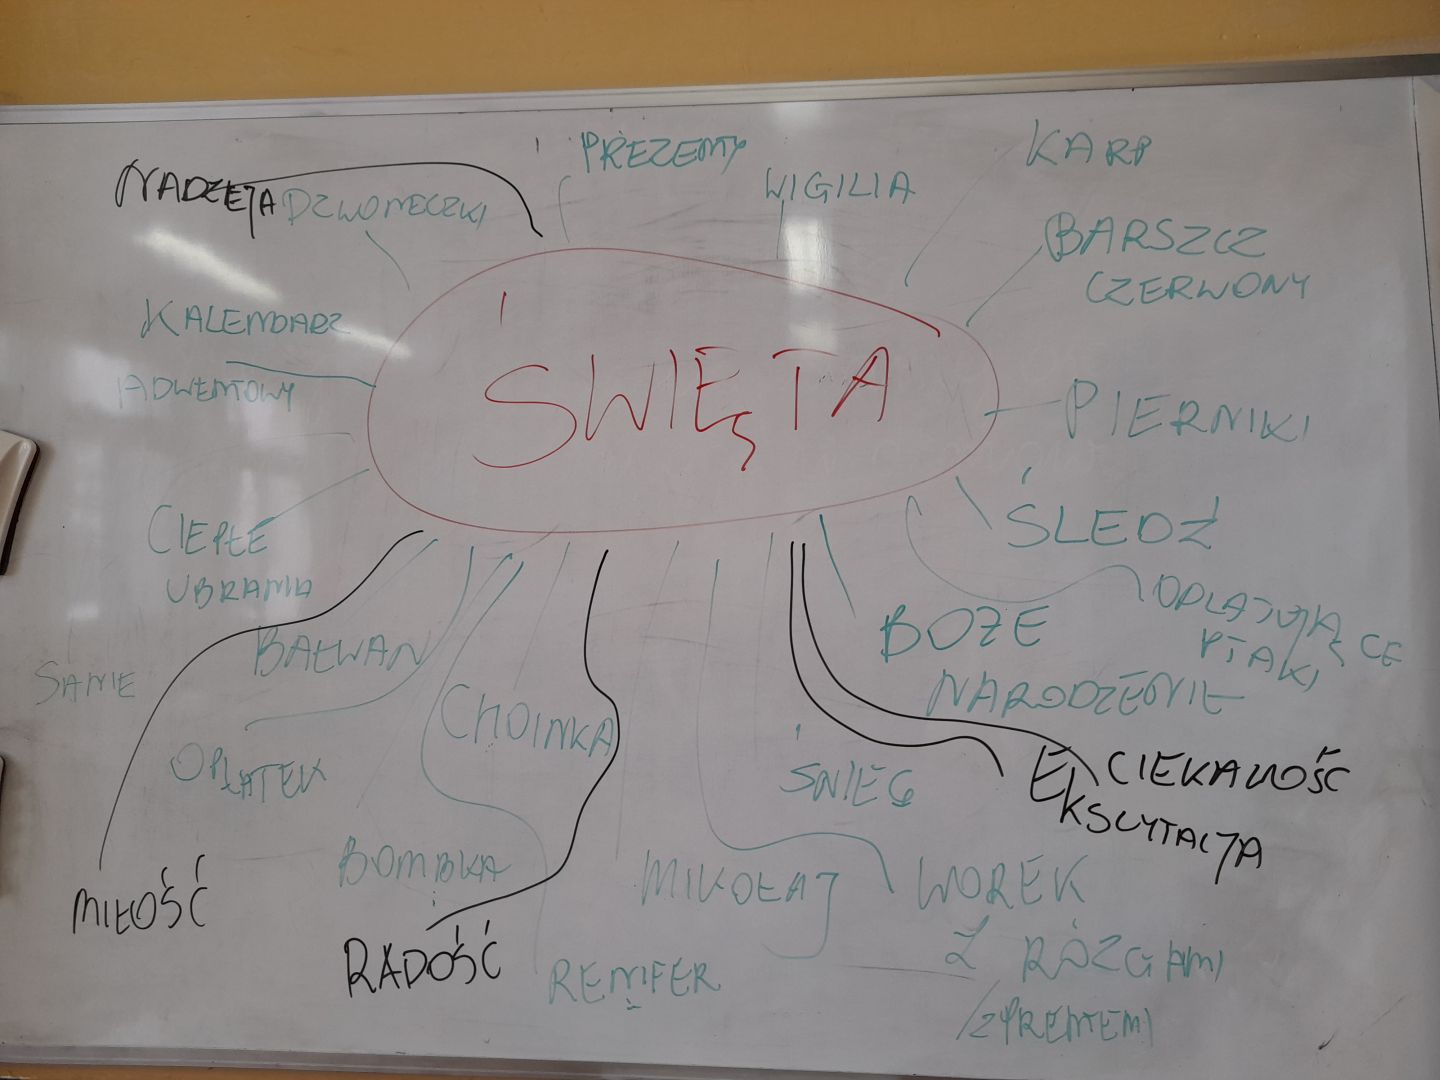 PREZENTY
KARP
WIGILIA
NADZEJA
DZWONECZKI
BARSZCZ
CZERWONY
KALENDARZ
ADWENTOWY
ŚWIĘTA
PIERNIKI
ŚLEDŹ
CIEPŁE
UBRANIA
ODLATUJĄCE
PTAKI
BOŻE
NARODZENIE
BAŁWAN
SANIE
CHOINKA
OPŁATEK
ŚNIEG
CIEKAWOŚĆ
EKSCYTACJA
BOMBKA
MIKOŁAJ
WOREK
Z RÓZGAMI
MIŁOŚĆ
RADOŚĆ
RENIFER